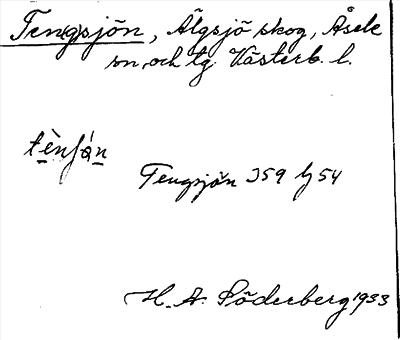 Tengsjön, Älgsjö skog, Åsele
sn och tg. Västerb. l.
tènʃǻn
Tengsjön 359 h 54
H. A. Söderberg 1933